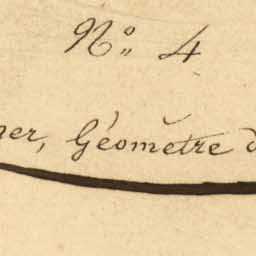 N.º 4
er, Géomètre d